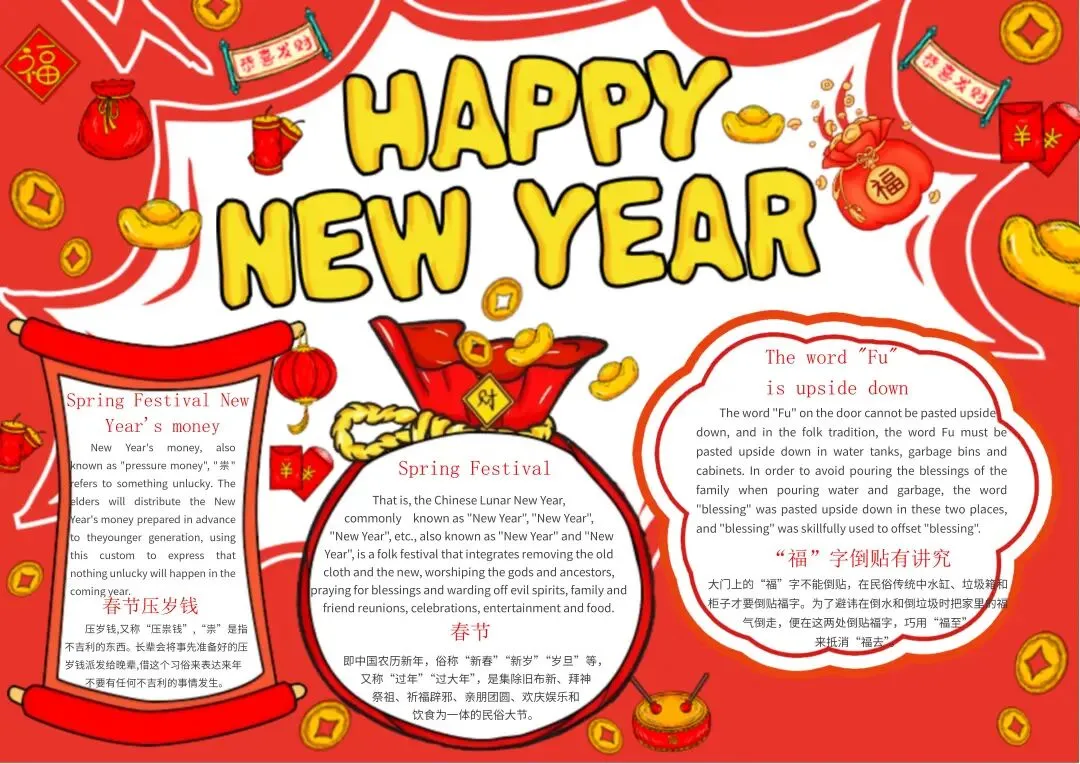 福
恭喜发财
恭喜发财
HAPPY
NEW YEAR
¥
福
Spring Festival New
Year's money
New Year's money, also
known as "pressure money", "祟"
refers to something unlucky. The
elders will distribute the New
Year's money prepared in advance
to theyounger generation, using
this custom to express that
nothing unlucky will happen in the
coming year.
春节压岁钱
压岁钱,又称“压祟钱”,“祟”是指
不吉利的东西。长辈会将事先准备好的压
岁钱派发给晚辈,借这个习俗来表达来年
不要有任何不吉利的事情发生。
¥
¥
财
Spring Festival
That is, the Chinese Lunar New Year,
commonly known as "New Year", "New Year",
"New Year", etc., also known as "New Year" and "New
Year", is a folk festival that integrates removing the old
cloth and the new, worshiping the gods and ancestors,
praying for blessings and warding off evil spirits, family and
friend reunions, celebrations, entertainment and food.
春节
即中国农历新年，俗称“新春”“新岁”“岁旦”等，
又称“过年”“过大年”，是集除旧布新、拜神
祭祖、祈福辟邪、亲朋团圆、欢庆娱乐和
饮食为一体的民俗大节。
The word "Fu"
is upside down
The word "Fu" on the door cannot be pasted upside
down, and in the folk tradition, the word Fu must be
pasted upside down in water tanks, garbage bins and
cabinets. In order to avoid pouring the blessings of the
family when pouring water and garbage, the word
"blessing" was pasted upside down in these two places,
and "blessing" was skillfully used to offset "blessing".
“福”字倒贴有讲究
大门上的“福”字不能倒贴，在民俗传统中水缸、垃圾箱和
柜子才要倒贴福字。为了避讳在倒水和倒垃圾时把家里的福
气倒走，便在这两处倒贴福字，巧用“福至”
来抵消“福去”。